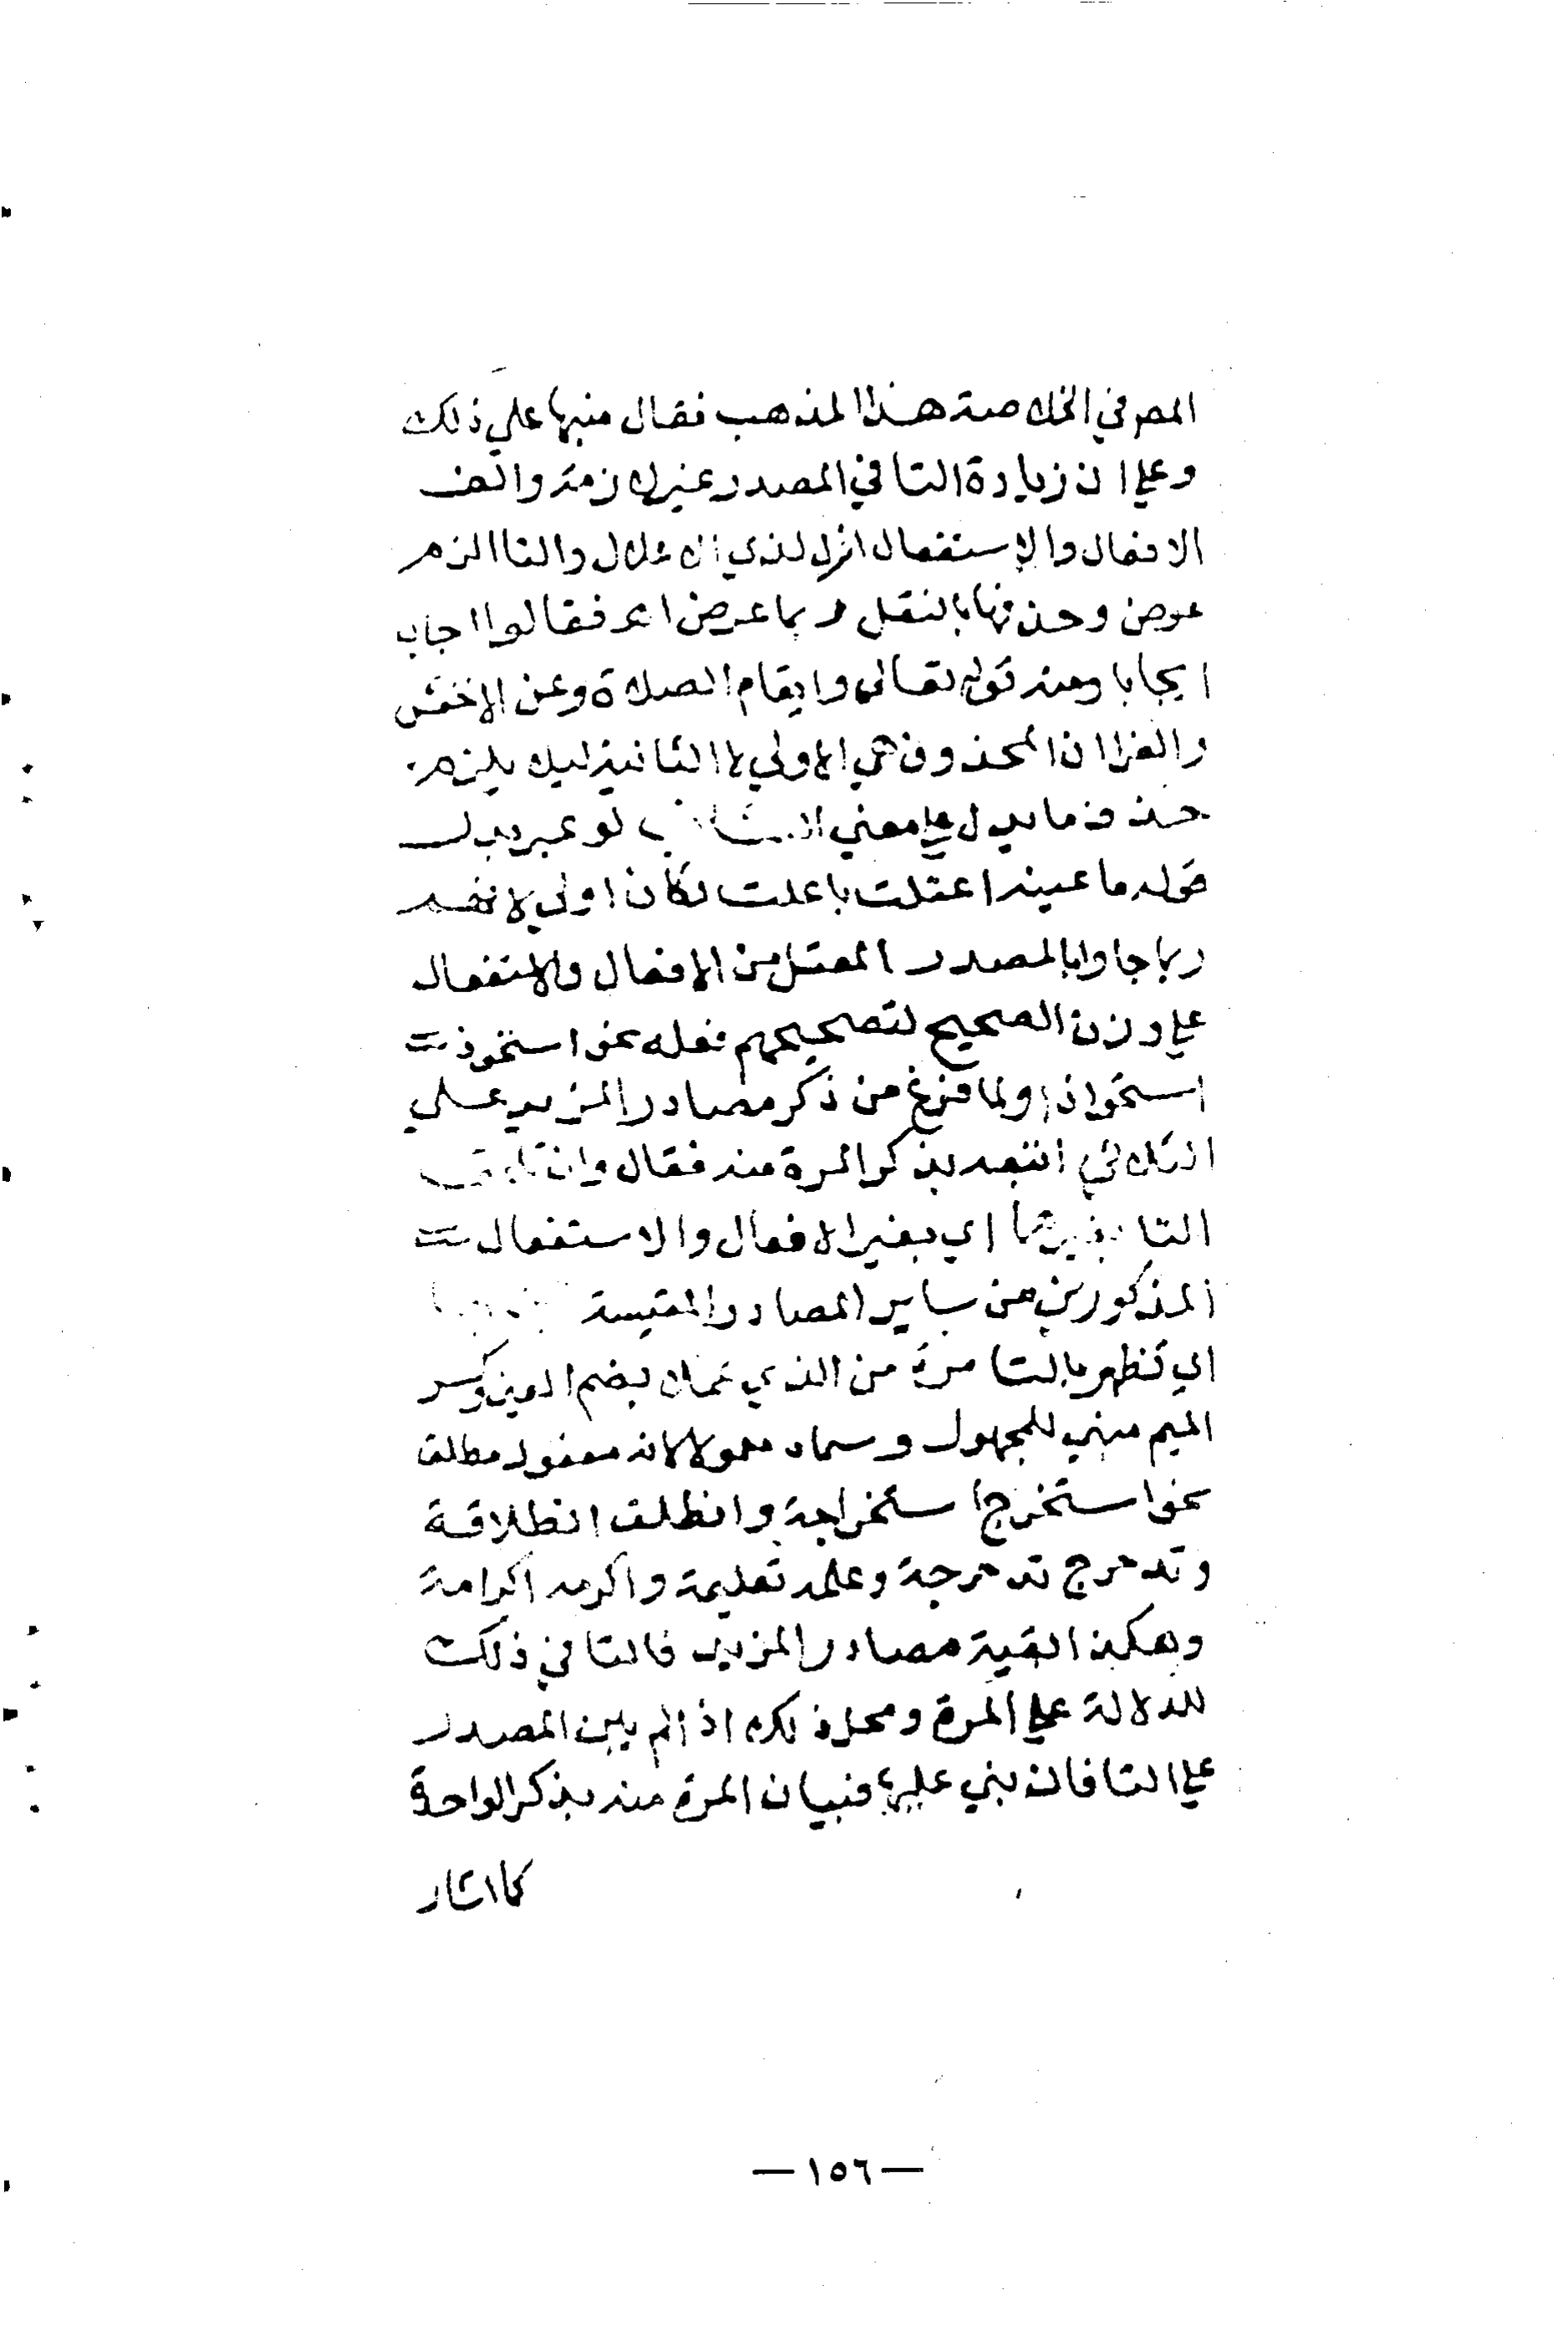 المص في الخلاصة هذا المذهب فقال منبها علي ذلك
وعلي ان زيادة التا في المصدر غير لازمة والف
الافعال والاستفعال ازل لذي الاعلال والتا الزم
عوض وحذفها بالنقل ربما عرض اي فقالوا اجاب
ايجابا ومنه قوله تعالى وايقام الصلاة وعن الاخفش
والفرا ان المحذوف هي الاولي لا الثانية ليلا يلزم
حذف ما يدل علي معني لو عبر بدل
قوله ما عينه اعتلت باعلت لكان اولي لانهم
ربما جاوا بالمصدر المعتل من الافعال والاستفعال
علي وزن الصحيح لتصحيحهم فعله نحو استحوذت
استحواذا ولما فرغ من ذكر مصادر المزيد علي
الثلاثي اتبعه بذكر المرة منه فقال وان تلحق
التا بغيرهما اي بغير الافعال والاستفعال
المذكورين من ساير المصادر المقيسة
اي تظهر بالتا مرة من الذي عملا بضم العين وكسر
الميم مبني للمجهول وسماه معمولا لانه مفعول مطلق
نحو استخرج استخراجة وانطلق انطلاقة
وتدحرج تدحرجة وعلمه تعليمة واكرمه اكرامة
وهكذا بقية مصادر المزيد فالتا في ذلك
للدلالة علي المرة ومحل ذلك اذا لم يبن المصدر
علي التا فان بني عليها فبيان المرة منه بذكر الواحدة
كما اشار
— ١٥٦ —